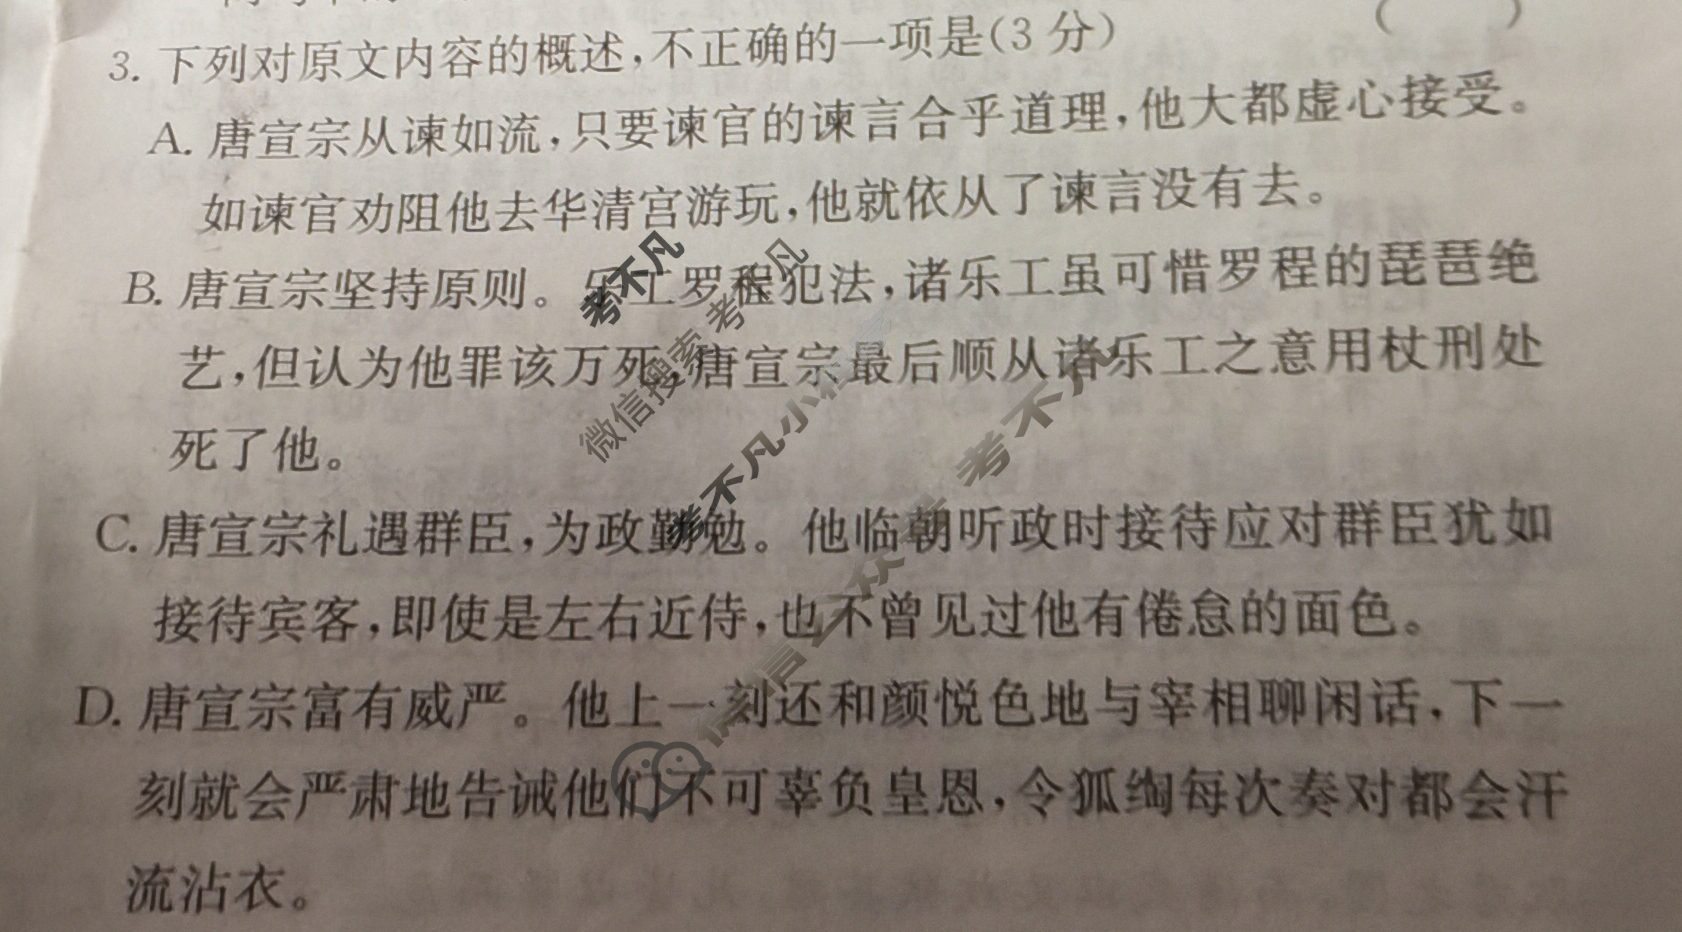 3. 下列对原文内容的概述,不正确的一项是(3 分) (　　)
A. 唐宣宗从谏如流,只要谏官的谏言合乎道理,他大都虚心接受。
如谏官劝阻他去华清宫游玩,他就依从了谏言没有去。
B. 唐宣宗坚持原则。乐工罗程犯法,诸乐工虽可惜罗程的琵琶绝
艺,但认为他罪该万死,唐宣宗最后顺从诸乐工之意用杖刑处
死了他。
C. 唐宣宗礼遇群臣,为政勤勉。他临朝听政时接待应对群臣犹如
接待宾客,即使是左右近侍,也不曾见过他有倦怠的面色。
D. 唐宣宗富有威严。他上一刻还和颜悦色地与宰相聊闲话,下一
刻就会严肃地告诫他们不可辜负皇恩,令狐绹每次奏对都会汗
流沾衣。
考不凡
微信搜索 考不凡
考不凡小
考不凡